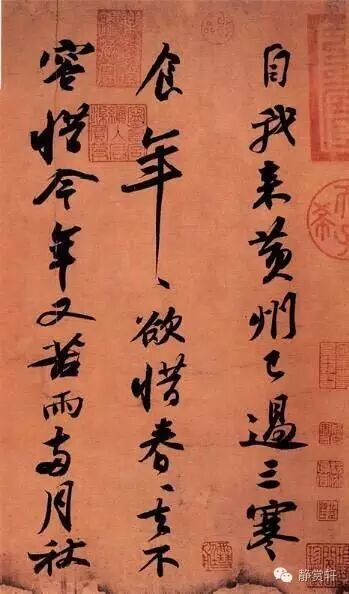 自我来黄州已过三寒
食年、欲惜春、去不
容惜今年又苦雨两月秋
静赏轩